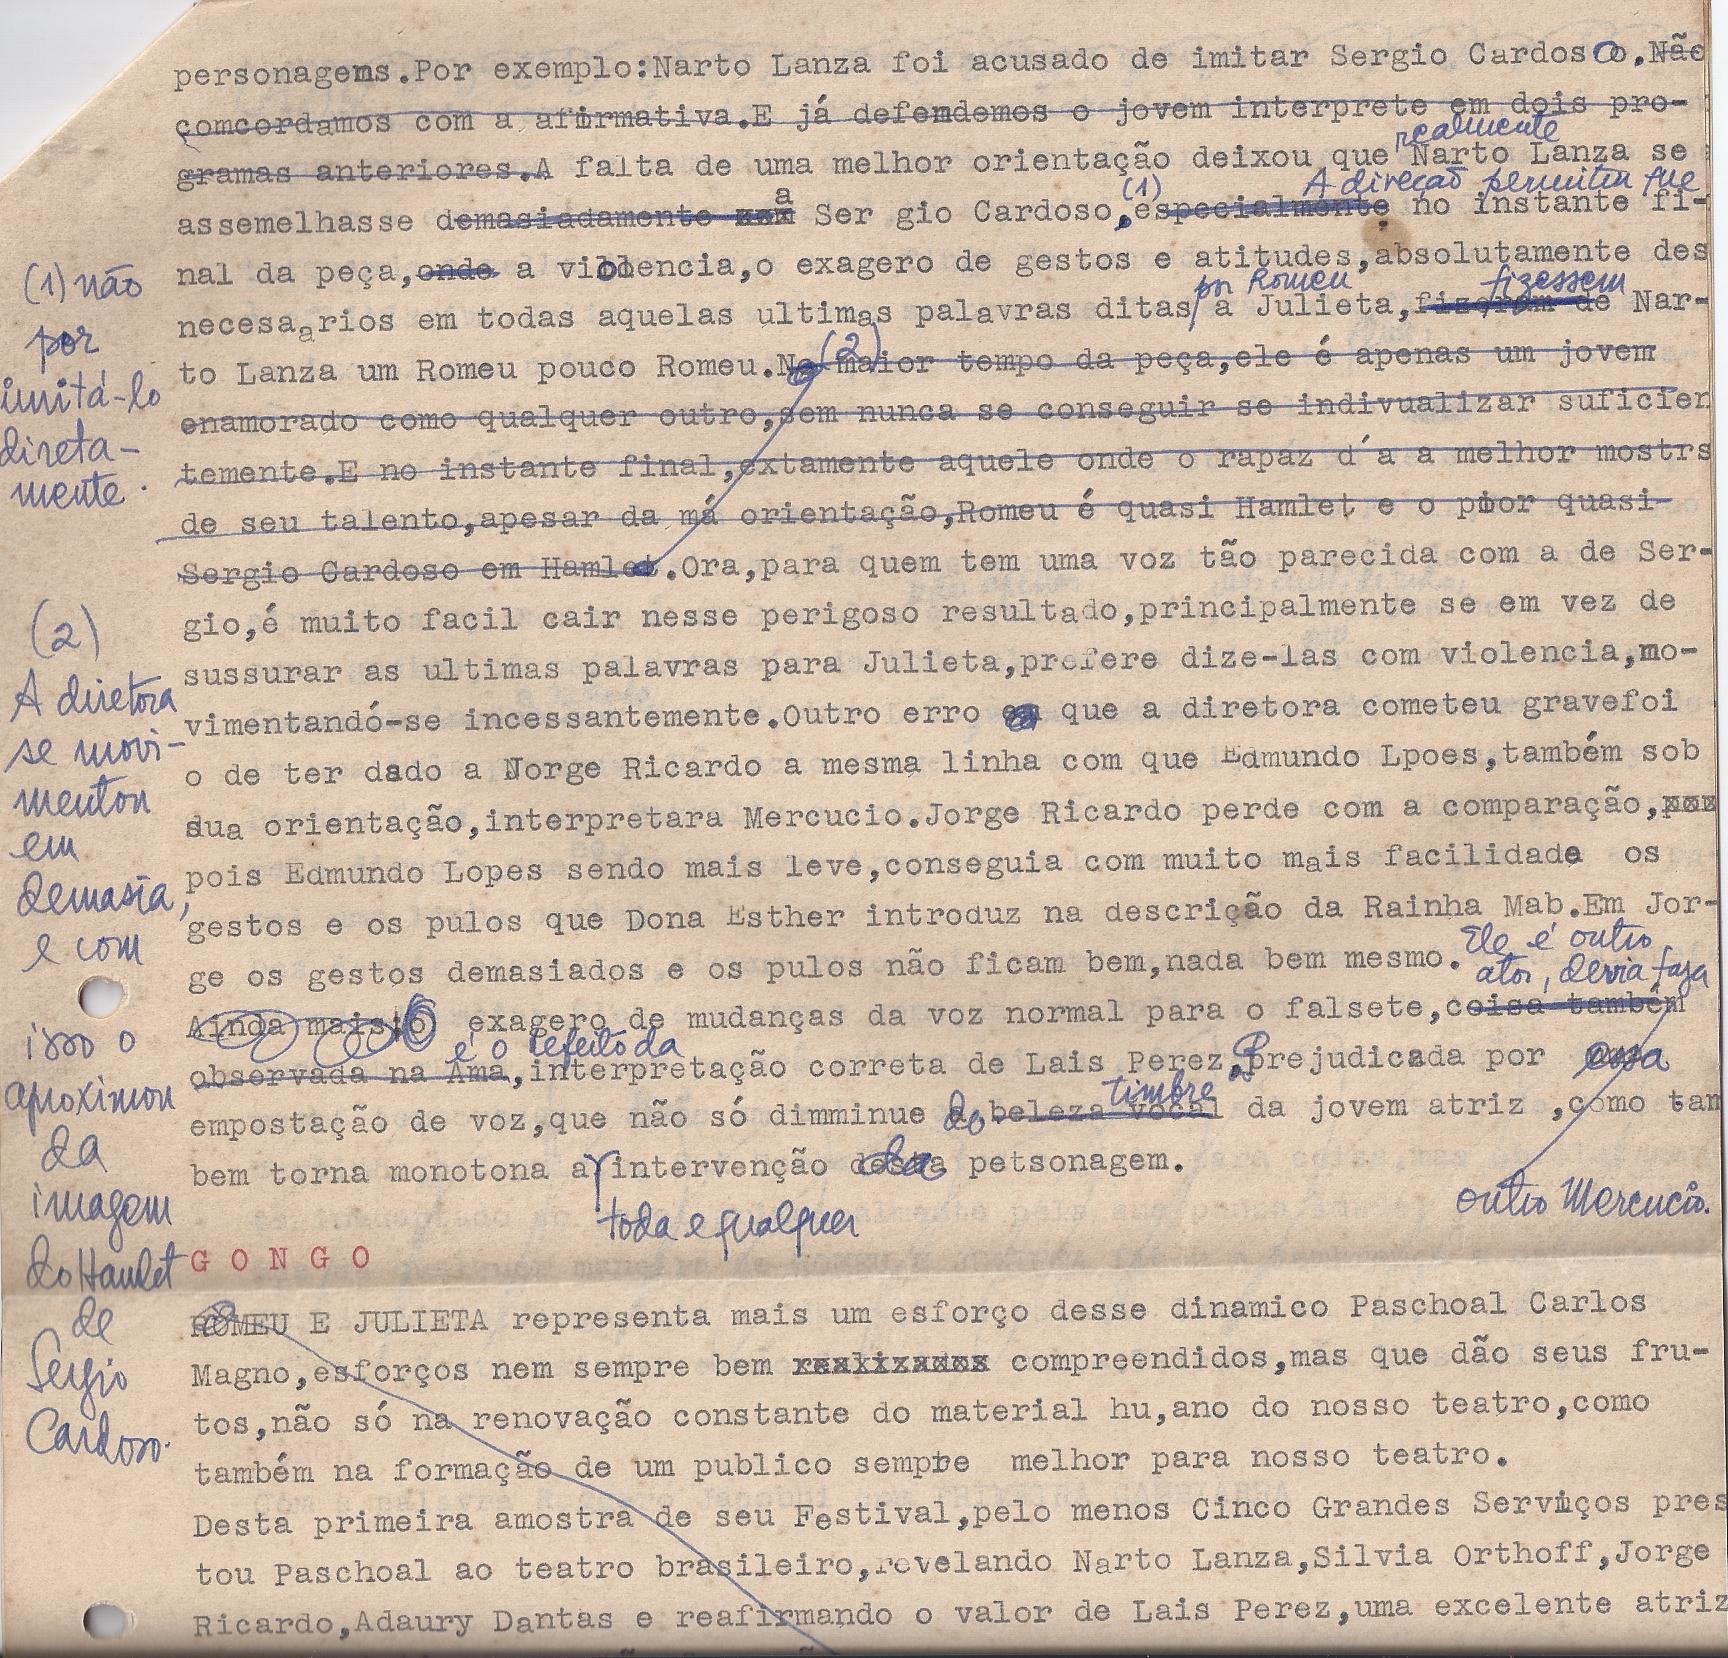 personagens.Por exemplo:Narto Lanza foi acusado de imitar Sergio Cardoso.Não
comcordamos com a afirmativa.E já defendemos o jovem interprete em dois pro-
realmente
gramas anteriores.A falta de uma melhor orientação deixou que Narto Lanza se
(1) A direção permitiu que
a
assemelhasse demasiadamente Ser gio Cardoso,especialmente no instante fi-
nal da peça,onde a violencia,o exagero de gestos e atitudes,absolutamente des
por Romeu fizessem
necesaarios em todas aquelas ultimas palavras ditas a Julieta,fizeram de Nar-
(2)
to Lanza um Romeu pouco Romeu.No maior tempo da peça,ele é apenas um jovem
enamorado como qualquer outro,sem nunca se conseguir se indivualizar suficien
temente.E no instante final,extamente aquele onde o rapaz d´a a melhor mostrs
de seu talento,apesar da má orientação,Romeu é quasi Hamlet e o pior quasi
Sergio Cardoso em Hamlet.Ora,para quem tem uma voz tão parecida com a de Ser-
gio,é muito facil cair nesse perigoso resultado,principalmente se em vez de
sussurar as ultimas palavras para Julieta,prefere dize-las com violencia,mo-
vimentandó-se incessantemente.Outro erro que a diretora cometeu gravefoi
o de ter dado a Norge Ricardo a mesma linha com que Edmundo Lpoes,também sob
sua orientação,interpretara Mercucio.Jorge Ricardo perde com a comparação,xxx
pois Edmundo Lopes sendo mais leve,conseguia com muito mais facilidade os
gestos e os pulos que Dona Esther introduz na descrição da Rainha Mab.Em Jor-
ge os gestos demasiados e os pulos não ficam bem,nada bem mesmo.
Ele é outro
ator, devia fazer
outro Mercucio.
Ainda mais o exagero de mudanças da voz normal para o falsete,coisa também
é o defeito da
observada na Ama,interpretação correta de Lais Perez,Prejudicada por essa
do timbre
empostação de voz,que não só dimminue a beleza vocal da jovem atriz ,como tam
bem torna monotona a intervenção da petsonagem.
toda e qualquer
G O N G O
ROMEU E JULIETA representa mais um esforço desse dinamico Paschoal Carlos
Magno,esforços nem sempre bem compreendidos,mas que dão seus fru-
tos,não só na renovação constante do material hu,ano do nosso teatro,como
também na formação de um publico sempre melhor para nosso teatro.
Desta primeira amostra de seu Festival,pelo menos Cinco Grandes Serviços pres
tou Paschoal ao teatro brasileiro,revelando Narto Lanza,Silvia Orthoff,Jorge
Ricardo,Adaury Dantas e reafirmando o valor de Lais Perez,uma excelente atriz
(1) não
por
imitá-lo
direta-
mente.
(2)
A diretora
se movi-
mentou
em
demasia,
e com
isso o
aproximou
da
imagem
do Hamlet
de
Sergio
Cardoso.